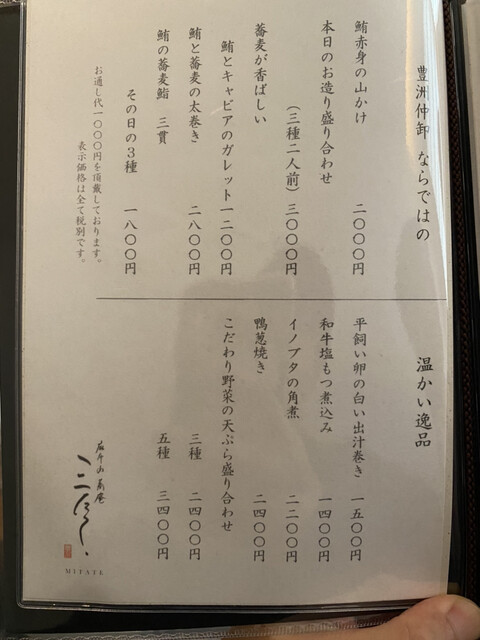 豊洲仲卸 ならではの
鮪赤身の山かけ 二〇〇〇円
本日のお造り盛り合わせ
(三種二人前) 三〇〇〇円
蕎麦が香ばしい
鮪とキャビアのガレット 一二〇〇円
鮪と蕎麦の太巻き 二八〇〇円
鮪の蕎麦鮨 三貫
その日の3種 一八〇〇円
お通し代一〇〇〇円を頂戴しております。
表示価格は全て税別です。
温かい逸品
平飼い卵の白い出汁巻き 一五〇〇円
和牛塩もつ煮込み 一四〇〇円
イノブタの角煮 二二〇〇円
鴨葱焼き 二四〇〇円
こだわり野菜の天ぷら盛り合わせ
三種 二四〇〇円
五種 三四〇〇円
MITATE